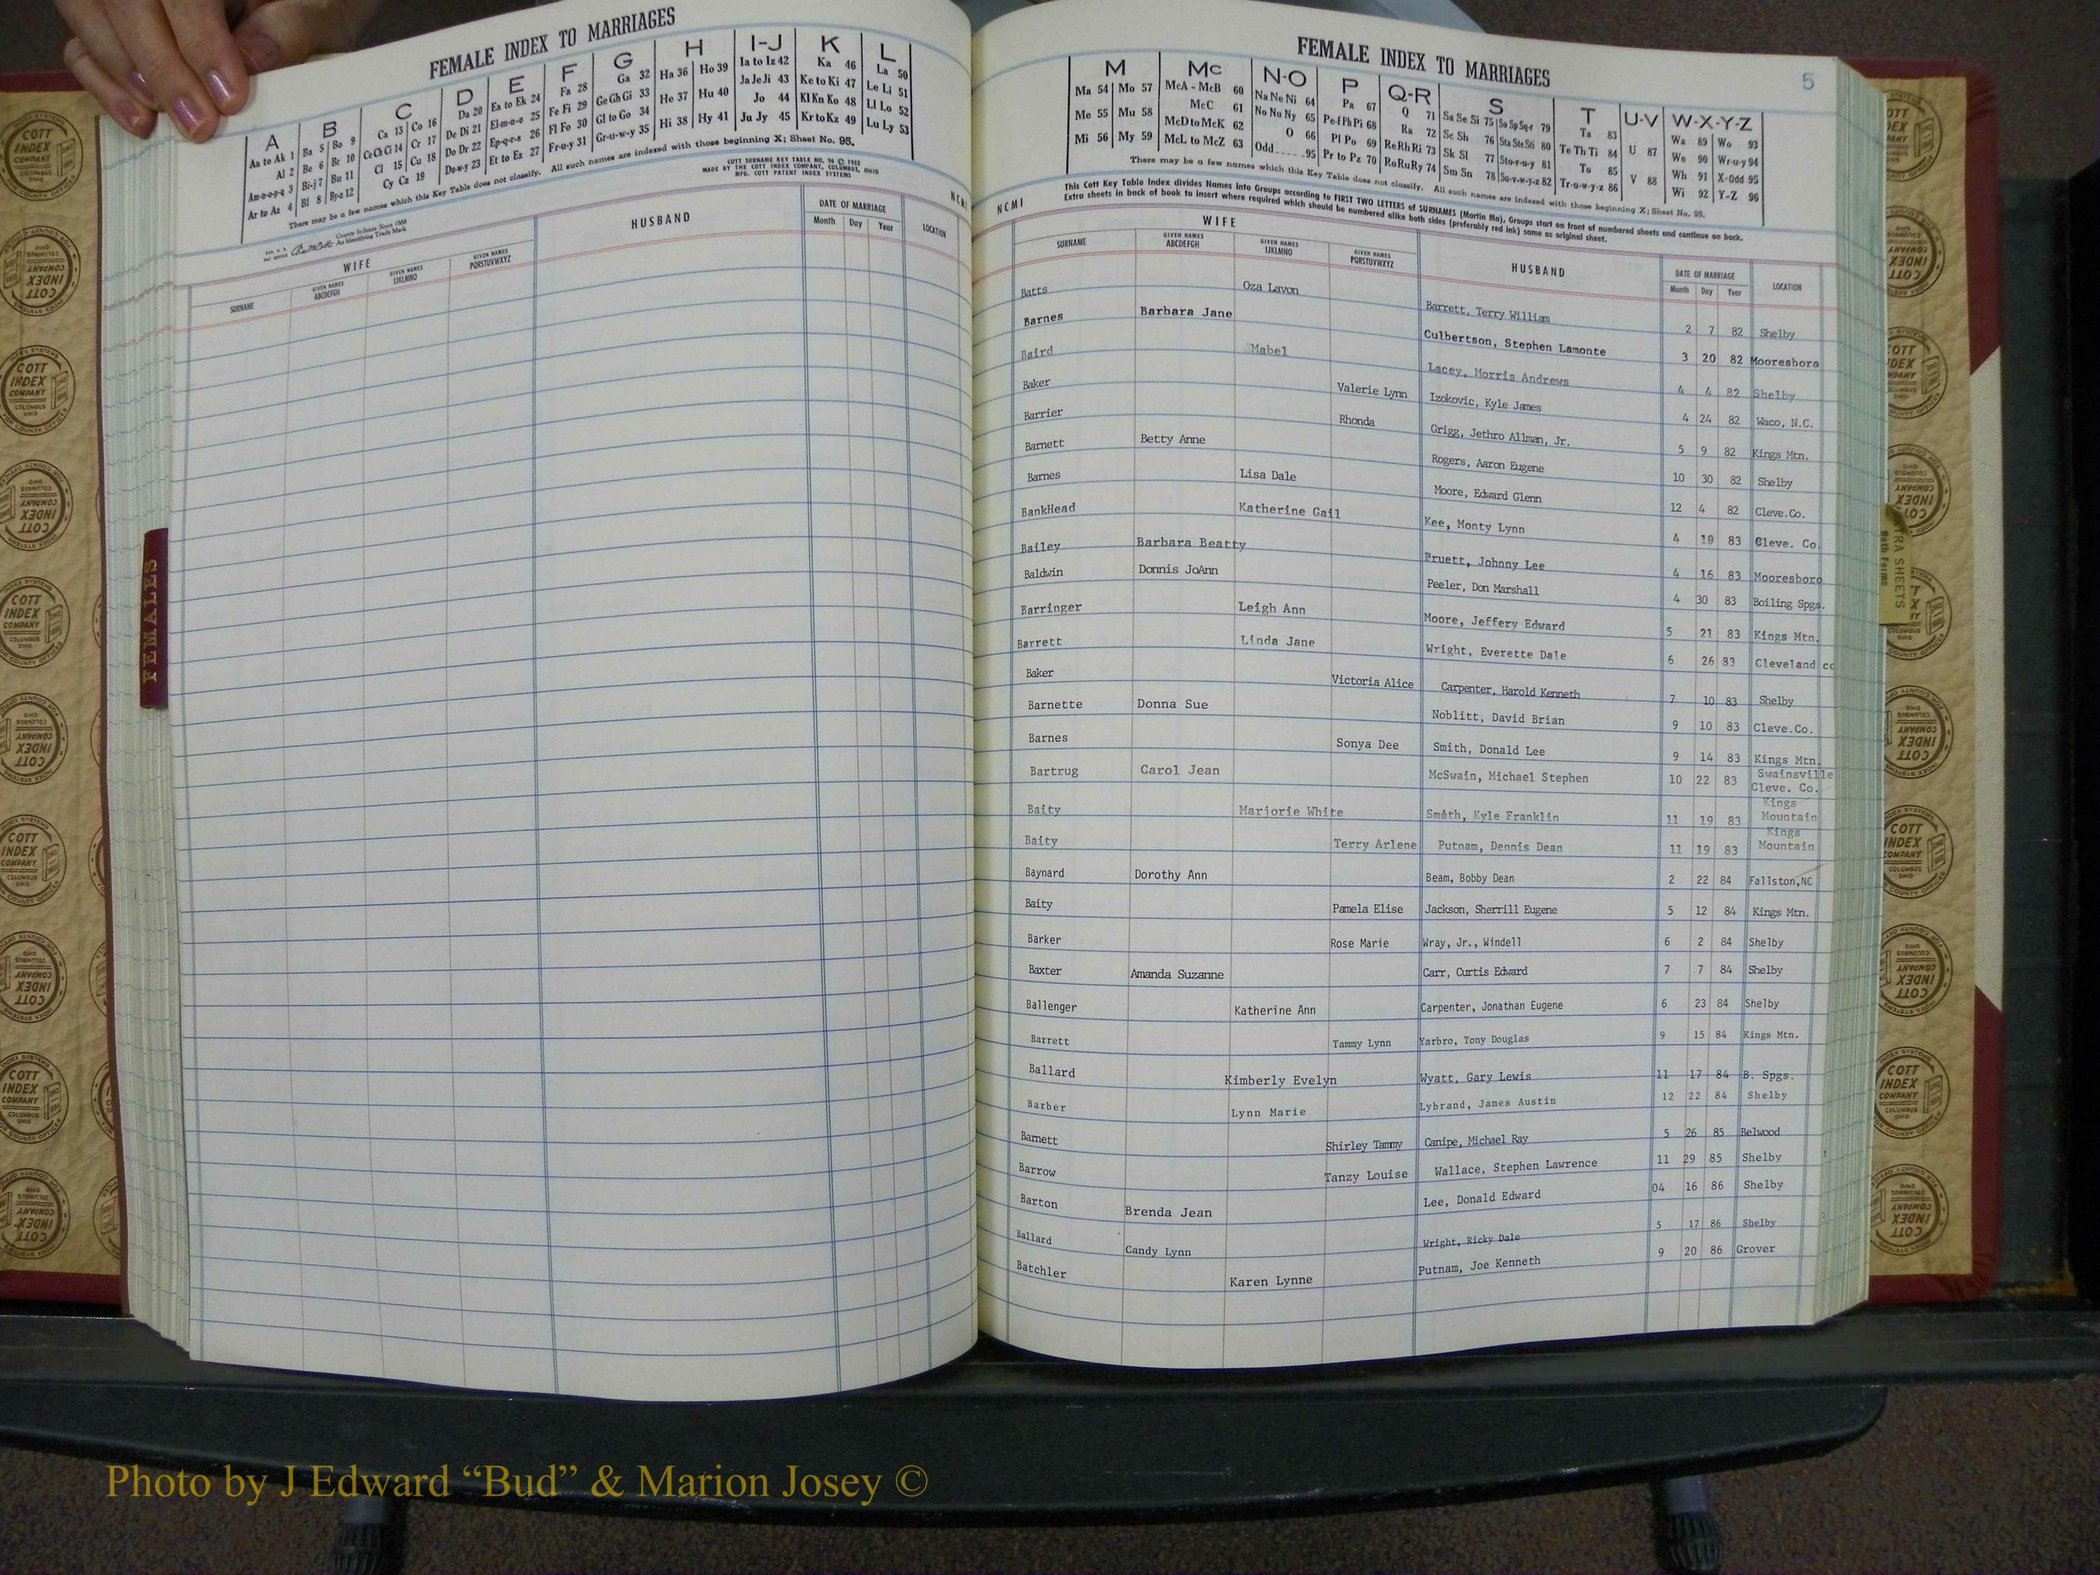 FEMALE INDEX TO MARRIAGES
A B C D E F G H I-J K L
Aa to Ak 1 Ba 5 Bo 9 Ca 13 Co 16 Da 20 Ea to Ek 24 Fa 28 Ga 32 Ha 36 Ho 39 Ia to Iz 42 Ka 46 La 50
Al 2 Be 6 Br 10 Ce Ch Ci 14 Cr 17 De Di 21 El-m-n-o 25 Fe Fi 29 Ge Gh Gi 33 He 37 Hu 40 Ja Je Ji 43 Ke to Ki 47 Le Li 51
Am-n-o-p-q 3 Bi-j 7 Bu 11 Cl 15 Cu 18 Do Dr 22 Ep-q-r-s 26 Fl Fo 30 Gl to Go 34 Hi 38 Hy 41 Jo 44 Kl Kn Ko 48 Ll Lo 52
Ar to Az 4 Bl 8 By-z 12 Cy Cz 19 Du-w-y 23 Et to Ez 27 Fr-u-y 31 Gr-u-w-y 35 Ju Jy 45 Kr to Kz 49 Lu Ly 53
There may be a few names which this Key Table does not classify. All such names are indexed with those beginning X; Sheet No. 95.
COTT SURNAME KEY TABLE NO. 96 © 1952
BY THE COTT INDEX COMPANY, COLUMBUS, OHIO
MADE BY MFG. COTT PATENT INDEX SYSTEMS
County Indexes Since 1888
An Identifying Trade Mark
NCMI
WIFE HUSBAND DATE OF MARRIAGE LOCATION
SURNAME GIVEN NAMES ABCDEFGH GIVEN NAMES IJKLMNO GIVEN NAMES PQRSTUVWXYZ Month Day Year
FEMALES
FEMALE INDEX TO MARRIAGES 5
M Mc N-O P Q-R S T U-V W-X-Y-Z
Ma 54 Mo 57 McA - McB 60 Na Ne Ni 64 Pa 67 Q 71 Sa Se Si 75 So Sp Sq-r 79 Ta 83 U 87 Wa 89 Wo 93
Me 55 Mu 58 McC 61 No Nu Ny 65 Pe-f Ph Pi 68 Ra 72 Sc Sh 76 Sta Ste Sti 80 Te Th Ti 84 V 88 We 90 Wr-u-y 94
Mi 56 My 59 McD to McK 62 O 66 Pl Po 69 Re Rh Ri 73 Sk Sl 77 Sto-r-u-y 81 To 85 Wh 91 X-Odd 95
McL to McZ 63 Odd 95 Pr to Pz 70 Ro Ru Ry 74 Sm Sn 78 Su-v-w-y-z 82 Tr-u-w-y-z 86 Wi 92 Y-Z 96
There may be a few names which this Key Table does not classify. All such names are indexed with those beginning X; Sheet No. 95.
This Cott Key Table Index divides Names into Groups according to FIRST TWO LETTERS of SURNAMES (Martin Ma), Groups start on front of numbered sheets and continue on back.
Extra sheets in back of book to insert where required which should be numbered alike both sides (preferably red ink) same as original sheet.
NCMI
WIFE HUSBAND DATE OF MARRIAGE LOCATION
SURNAME GIVEN NAMES ABCDEFGH GIVEN NAMES IJKLMNO GIVEN NAMES PQRSTUVWXYZ Month Day Year
Batts Oza Lavon Barrett, Terry William 2 7 82 Shelby
Barnes Barbara Jane Culbertson, Stephen Lamonte 3 20 82 Mooresboro
Baird Mabel Lacey, Morris Andrews 4 4 82 Shelby
Baker Valerie Lynn Izokovic, Kyle James 4 24 82 Waco, N.C.
Barrier Rhonda Grigg, Jethro Allman, Jr. 5 9 82 Kings Mtn.
Barnett Betty Anne Rogers, Aaron Eugene 10 30 82 Shelby
Barnes Lisa Dale Moore, Edward Glenn 12 4 82 Cleve.Co.
BankHead Katherine Gail Kee, Monty Lynn 4 19 83 Cleve. Co.
Bailey Barbara Beatty Pruett, Johnny Lee 4 16 83 Mooresboro
Baldwin Donnis JoAnn Peeler, Don Marshall 4 30 83 Boiling Spgs.
Barringer Leigh Ann Moore, Jeffery Edward 5 21 83 Kings Mtn.
Barrett Linda Jane Wright, Everette Dale 6 26 83 Cleveland co
Baker Victoria Alice Carpenter, Harold Kenneth 7 10 83 Shelby
Barnette Donna Sue Noblitt, David Brian 9 10 83 Cleve.Co.
Barnes Sonya Dee Smith, Donald Lee 9 14 83 Kings Mtn.
Bartrug Carol Jean McSwain, Michael Stephen 10 22 83 Swainsville
Cleve. Co.
Baity Marjorie White Smith, Kyle Franklin 11 19 83 Kings
Mountain
Baity Terry Arlene Putnam, Dennis Dean 11 19 83 Kings
Mountain
Baynard Dorothy Ann Beam, Bobby Dean 2 22 84 Fallston,NC
Baity Pamela Elise Jackson, Sherrill Eugene 5 12 84 Kings Mtn.
Barker Rose Marie Wray, Jr., Windell 6 2 84 Shelby
Baxter Amanda Suzanne Carr, Curtis Edward 7 7 84 Shelby
Ballenger Katherine Ann Carpenter, Jonathan Eugene 6 23 84 Shelby
Barrett Tammy Lynn Yarbro, Tony Douglas 9 15 84 Kings Mtn.
Ballard Kimberly Evelyn Wyatt, Gary Lewis 11 17 84 B. Spgs.
Barber Lynn Marie Lybrand, James Austin 12 22 84 Shelby
Barnett Shirley Tammy Canipe, Michael Ray 5 26 85 Belwood
Barrow Tanzy Louise Wallace, Stephen Lawrence 11 29 85 Shelby
Barton Brenda Jean Lee, Donald Edward 04 16 86 Shelby
Ballard Candy Lynn Wright, Ricky Dale 5 17 86 Shelby
Batchler Karen Lynne Putnam, Joe Kenneth 9 20 86 Grover
COTT INDEX COMPANY COLUMBUS OHIO
Photo by J Edward “Bud” & Marion Josey ©